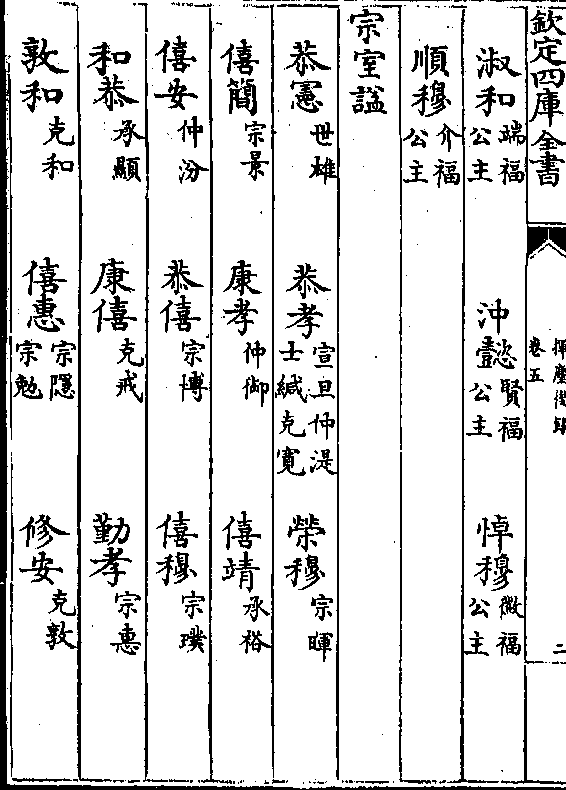 欽定四庫全書
揮麈後録
卷五
二
淑和端福公主 沖懿賢福公主 悼穆徽福公主
順穆介福公主
宗室諡
恭憲世雄 恭孝宣旦仲湜士緘克寛 榮穆宗暉
僖簡宗景 康孝仲御 僖靖承裕
僖安仲汾 恭僖宗博 僖穆宗璞
和恭承顯 康僖克戒 勤孝宗惠
敦和克和 僖惠宗隱宗勉 修安克敦